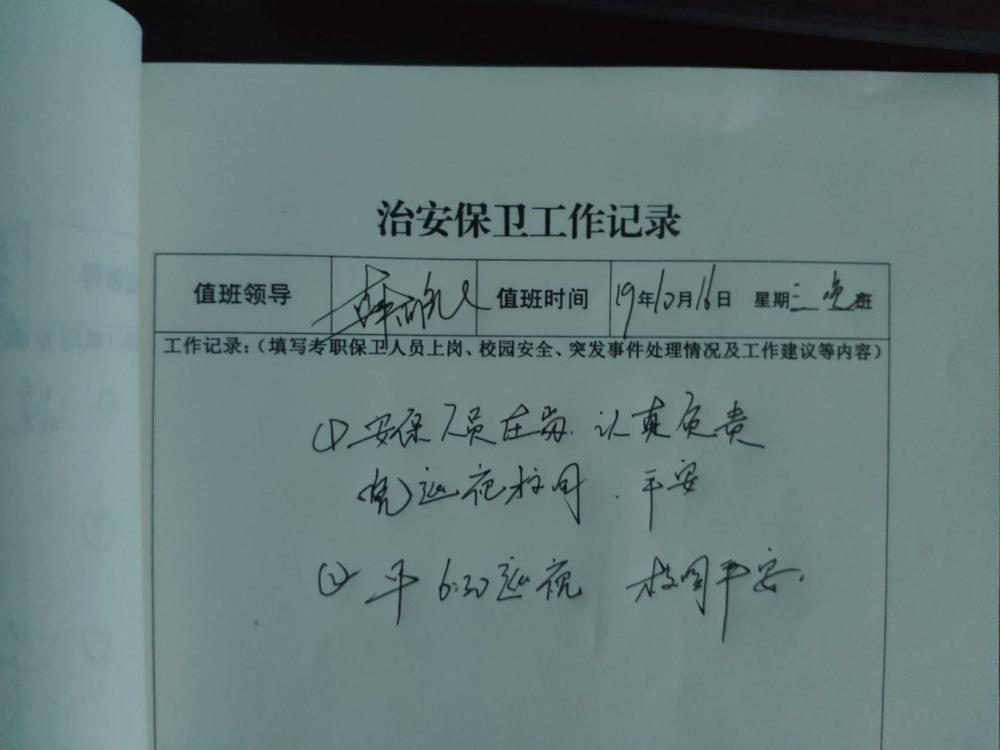 治安保卫工作记录
值班领导 值班时间 19年10月16日 星期三 晚班
工作记录:(填写专职保卫人员上岗、校园安全、突发事件处理情况及工作建议等内容)
① 安保人员在岗. 认真负责
(晚)巡视校园. 平安
② 早 6:30巡视 校园平安.